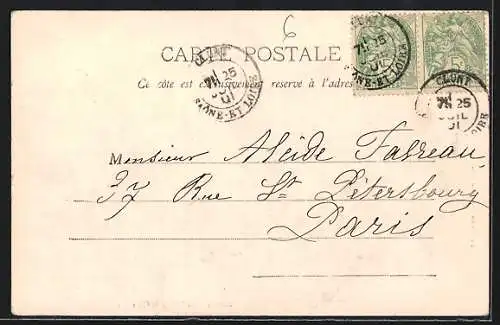 6
CARTE POSTALE
Ce côté est exclusivement réservé à l'adresse
CLUNY
7E 25
JUIL
01
SAÔNE-ET-LOIRE
CLUNY
7E 25
SAÔNE-ET-LOIRE
CLUNY
7E 25
JUIL
01
OIRE
5
Monsieur Alcide Farreau
37 Rue St Pétersbourg
Paris